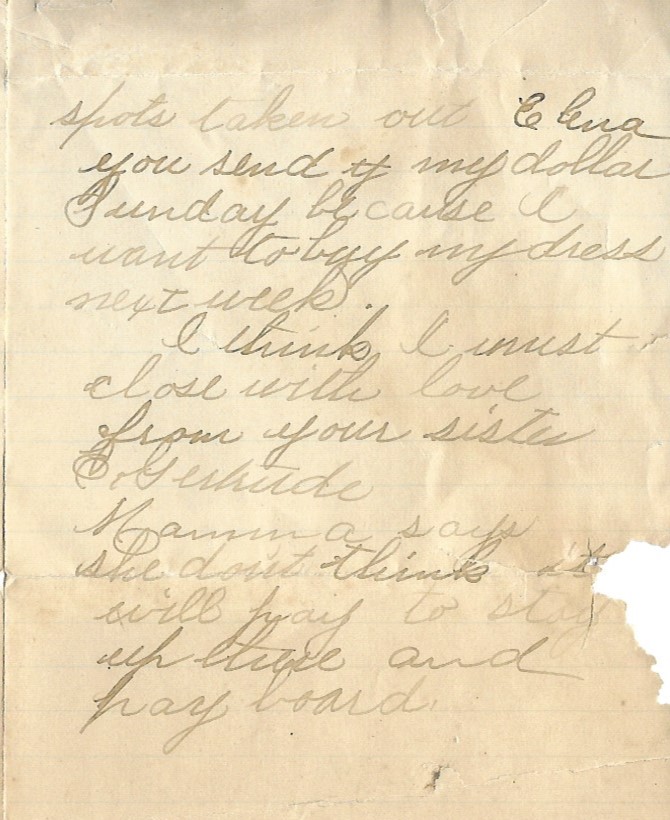 spots taken out Elena
you send my dollar
Sunday because I
want to buy my dress
next week.
I think I must
close with love
from your sister
Gertrude
Mamma says
she dont think it
will pay to stay
up there and
pay board.